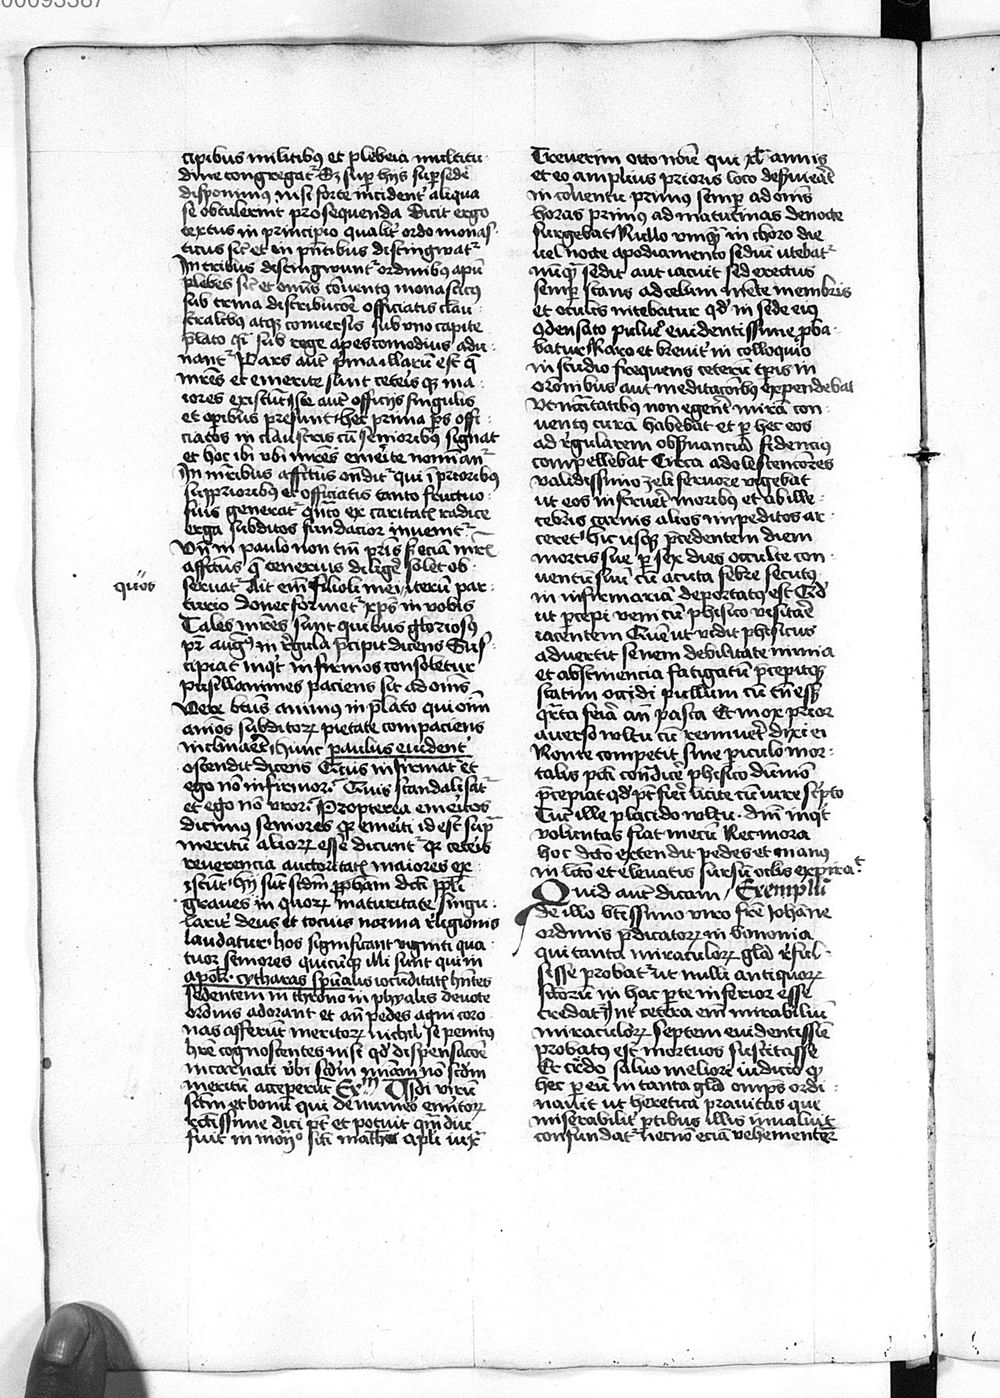 00093387
cipibus militibus et plebeia multitu
dine congregatur Sed super hijs supersedere
disponimus nisi forte incidenter aliqua
se obtulerint prosequenda Dicit ergo
textus in principio qualiter ordo monas
ticus sicut et in partibus distingwatur
In tribus distingwuntur ordinibus apum
plebes sicut et omnis conventus monasticus
sub trina distribucione officiatis clau
stralibus atque conversis sub uno capite
prelato quasi sub rege apes comodius adu
nantur Pars autem prima illarum est que
matres et emerite sunt ceteris que ma
iores existunt Ipse autem officijs singulis
et operibus presunt hec prima pars offi
ciatos in claustris cum senioribus signat
et hoc ibi ubi matres emerite nominantur
In matribus affectus ostenditur qui in prioribus
supprioribus et officiatis tanto fructuo
sius generatur quanto ex caritatis radice
erga subditos fundacior invenitur
Unde in paulo non tantum patris sed eciam matris
affectus que tenerius diligere solet ob
quos
servatur Ait enim filioli mei iterum par
turio donec formetur christus in vobis
Tales matres sunt quibus gloriosus
pater augustinus in regula precipit dicens Sus
cipiat inquit infirmos consoletur
pusillanimes paciens sit ad omnes
Vere beatus animus in prelato qui omnium
animos subditorum pietate compaciens
inclinaverit hunc paulus evidenter
ostendit dicens Quis infirmatur et
ego non infirmor Quis scandalisatur
et ego non uror Propterea emeritos
dicimus seniores quia emeriti id est supra
meritum aliorum esse dicuntur quia ceteris
reverencia auctoritatis maiores ex
istunt hij sunt secundum prophetam dicti populi
graves in quorum maturitate singu
lariter deus et tocius norma religionis
laudatur hos significant viginti qua
tuor seniores quicunque illi sunt qui in
apok. cytharas spiritualis iocunditatis habentes
sedentem in throno in phyalis devote
ordinis adorant et ante pedes agni coro
nas afferunt meritorum nichil se penitus
habere cognoscentes nisi quod dispensacione
incarnati verbi secundum gratiam non secundum
meritum acceperunt Exm Vidi virum
sanctum et bonum qui de numero emeritorum
rectissime dici potest et potuit quam diu
fuit in monasterio sancti mathie apostoli iuxta
Treverim otto nomine qui xl annis
et eo amplius prioris loco deserviverat
in conventu primus semper ad omnes
horas primus ad matutinas de nocte
surgebat Nullo unquam in choro die
vel nocte apodiamento sedium utebatur
nunquam sedit aut iacuit sed erectus
semper stans ad celum intente membris
et oculis nitebatur quod in sede eius
condensato pulvere evidentissime proba
batur Raro et breviter in colloquio
in studio frequens ceterum temporis in
oracionibus aut meditacionibus expendebat
Ut necessitatibus non egerent miram con
ventus curam habebat et per hec eos
ad regularem observanciam fidencius
compellebat Circa adolescenciores
validissimo zeli fervore vigebat
ut eos instrueret moribus et ab ille
cebris carnis alios impeditos ar
ceret hic usque precedentem diem
mortis sue per sex dies occulte con
ventum suum cum acuta febre secutus
in infirmariam deportatus est Quod
ut percepi veni cum phisico visitare
iacentem Quem ut vidit phisicus
advertit senem debilitate nimia
et abstinencia fatigatum precepitque
statim occidi pullum cum tamen esset
quarta feria ante pasca Et mox prior
averso vultu cum rennueret dixi ei
Nonne competit sine periculo mor
talis peccati condicere phisico dummodo
precipiat quod potest fieri licite cum vere scripto
Tunc ille placido vultu. domini inquit
voluntas fiat mecum Nec mora
hoc dicto extendit pedes et manus
in lecto et elevatis sursum oculis expiravit
Quid autem dicam Exemplum
de illo beatissimo viro fratre Johanne
ordinis predicatorum in bononia
qui tanta miraculorum gloria reful
sisse probatur ut nulli antiquorum
sanctorum in hac parte inferior esse
credatur Inter cetera enim mirabilium
miraculorum septem evidentissime
probatus est mortuos suscitasse
Et credo salvo meliori iudicio quod
hec per eum in tanta gloria omnipotens ordi
navit ut heretica pravitas que
miserabiliter partibus illis invaluit
confundatur necnon eciam vehementer